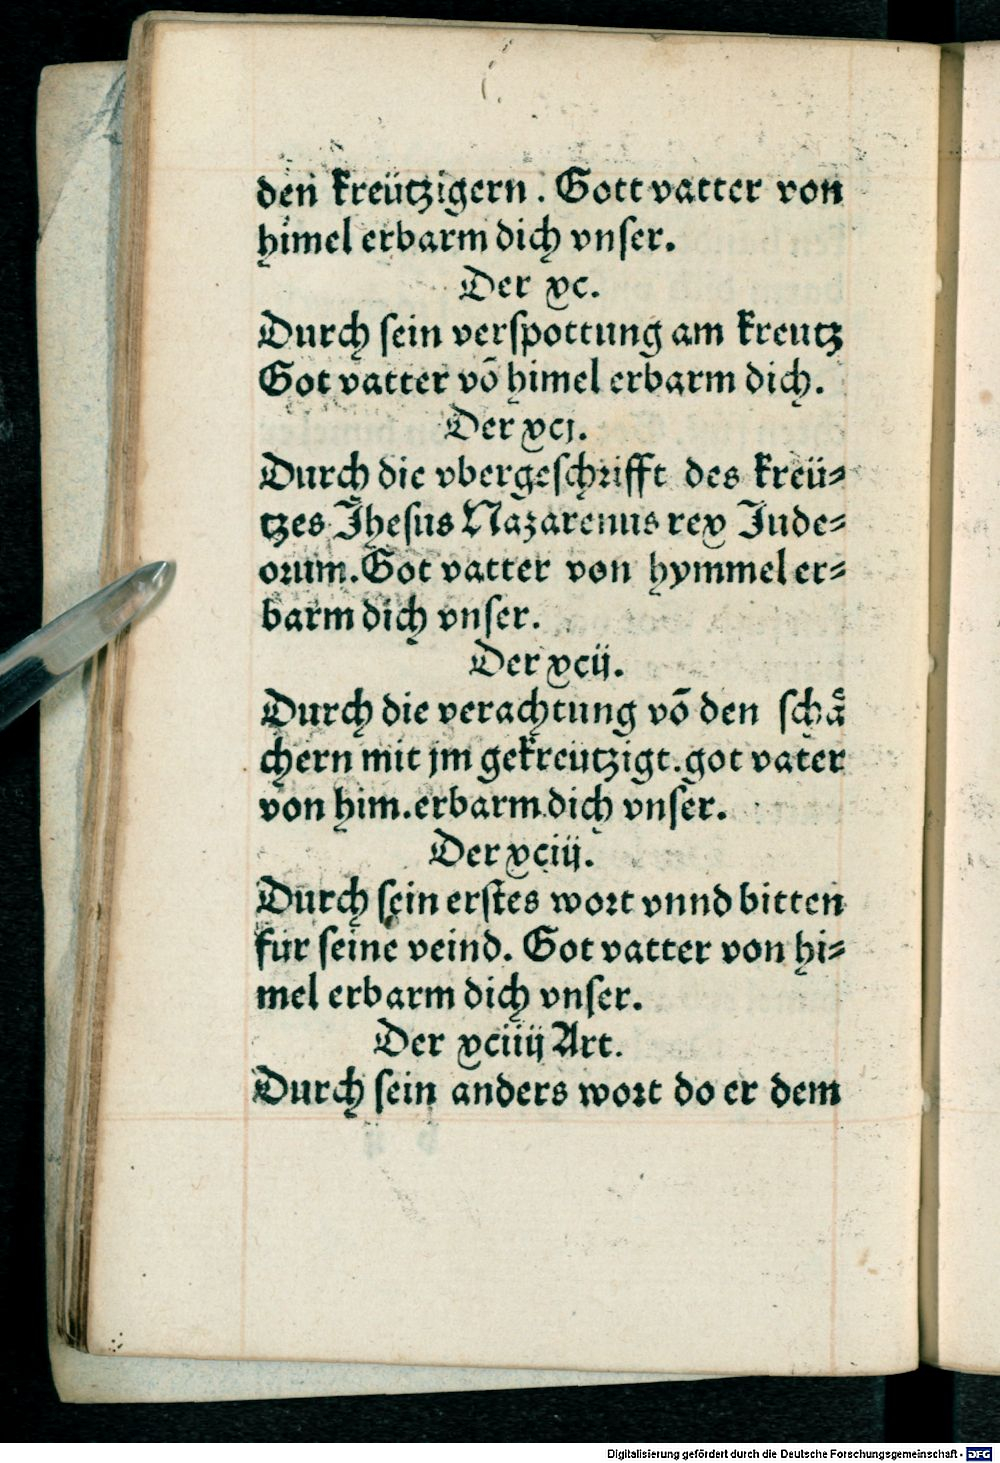 den kreützigern . Gott vatter von
himel erbarm dich vnser.
Der xc.
Durch sein verspottung am kreutz
Got vatter vō himel erbarm dich.
Der xcj.
Durch die vbergeschrifft des kreü-
tzes Jhesus Nazarenus rex Jude-
orum. Got vatter von hymmel er-
barm dich vnser.
Der xcij.
Durch die verachtung vō den schaͤ
chern mit jm gekreützigt. got vater
von him. erbarm dich vnser.
Der xciij.
Durch sein erstes wort vnnd bitten
für seine veind. Got vatter von hi-
mel erbarm dich vnser.
Der xciiij Art.
Durch sein anders wort do er dem
Digitalisierung gefördert durch die Deutsche Forschungsgemeinschaft - DFG